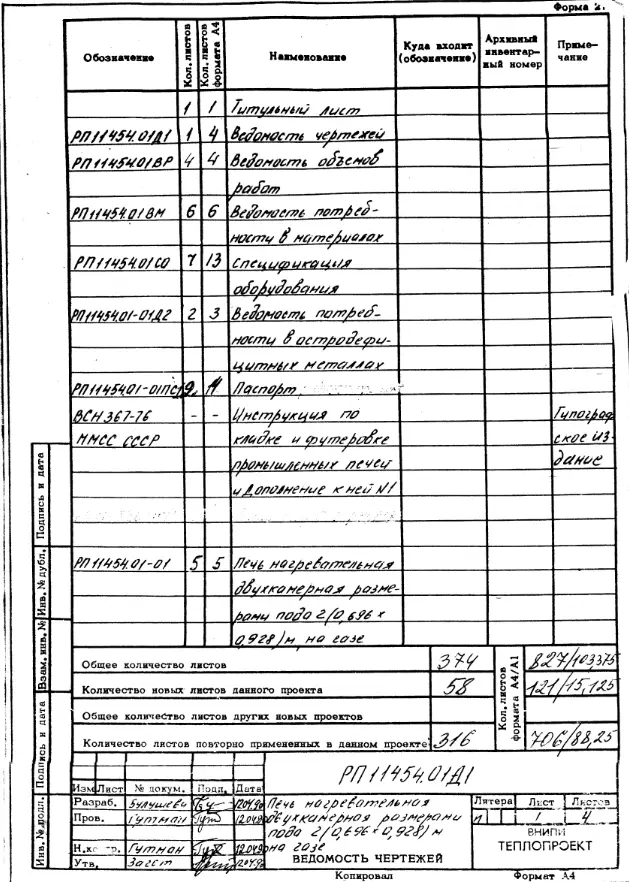 Форма 2.
Обозначение Кол. листов Кол. листов формата А4 Наименование Куда входит (обозначение) Архивный инвентар- ный номер Приме- чание
1 1 Титульный лист
РП11454.01Д1 1 4 Ведомость чертежей
РП11454.01ВР 4 4 Ведомость объемов
работ
РП11454.01ВМ 6 6 Ведомость потреб-
ности в материалах
РП11454.01СО 7 13 Спецификация
оборудования
РП11454.01-01Д2 2 3 Ведомость потреб-
ности в остродефи-
цитных металлах
РП11454.01-01ПС 9 11 Паспорт
ВСН 367-76 - - Инструкция по Типограф
ММСС СССР кладке и футеровке ское из-
промышленных печей дание
и Дополнение к ней №1
РП11454.01-01 5 5 Печь нагревательная
двухкамерная разме-
рами пода 2/(0,696 х
0,928)м на газе
Общее количество листов 374 Кол. листов формата А4/А1 827/103,375
Количество новых листов данного проекта 58 121/15,125
Общее количество листов других новых проектов
Количество листов повторно примененных в данном проекте 316 706/88,25
РП11454.01Д1
Изм Лист № докум. Подп. Дата
Разраб. 12.04.90 Печь нагревательная Литера Лист Листов
Пров. Гутман 12.04.90 двухкамерная размерами 1 4
пода 2/(0,696 х 0,928)м ВНИПИ
Н.контр. Гутман 12.04.90 на газе ТЕПЛОПРОЕКТ
Утв. 12.04.90 ВЕДОМОСТЬ ЧЕРТЕЖЕЙ
Копировал Формат А4
Инв. № подл. Подпись и дата Взам. инв. № Инв. № дубл. Подпись и дата